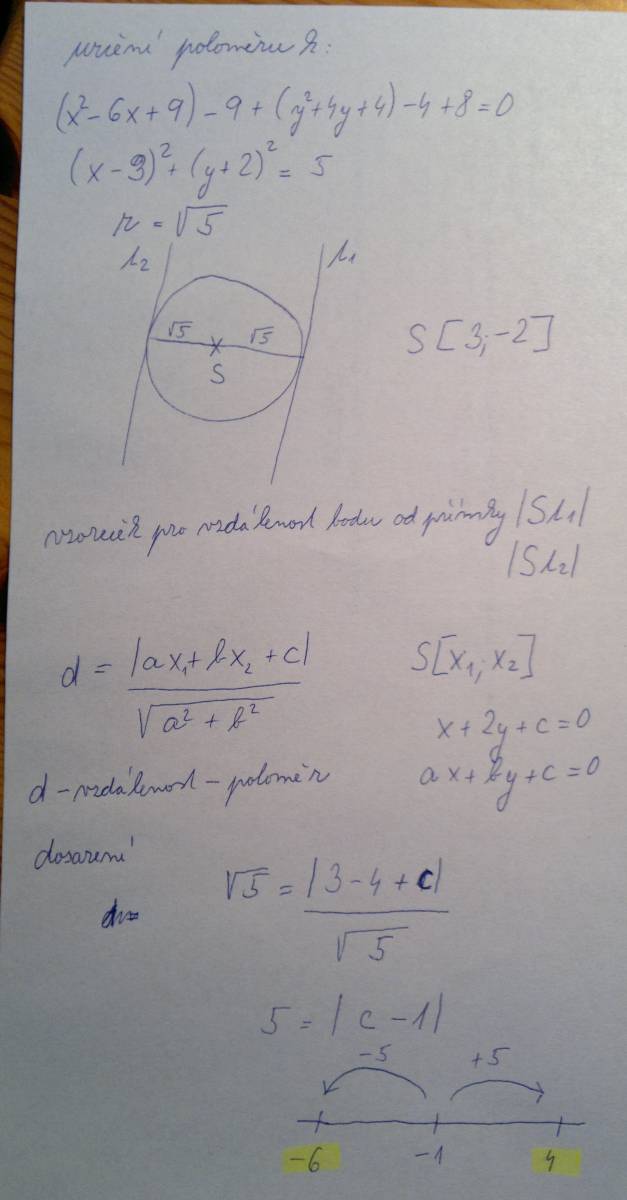 určení poloměru r:
(x²-6x+9)-9+(y²+4y+4)-4+8=0
(x-3)²+(y+2)² = 5
r = √5
t₂ t₁
√5 √5
S
S[3;-2]
vzoreček pro vzdálenost bodu od přímky |St₁|
|St₂|
d = |ax₁+bx₂+c| / √a²+b²
S[x₁;x₂]
x+2y+c=0
ax+by+c=0
d-vzdálenost-poloměr
dosazení
√5 = |3-4+c| / √5
5 = |c-1|
-5 +5
-6 -1 4